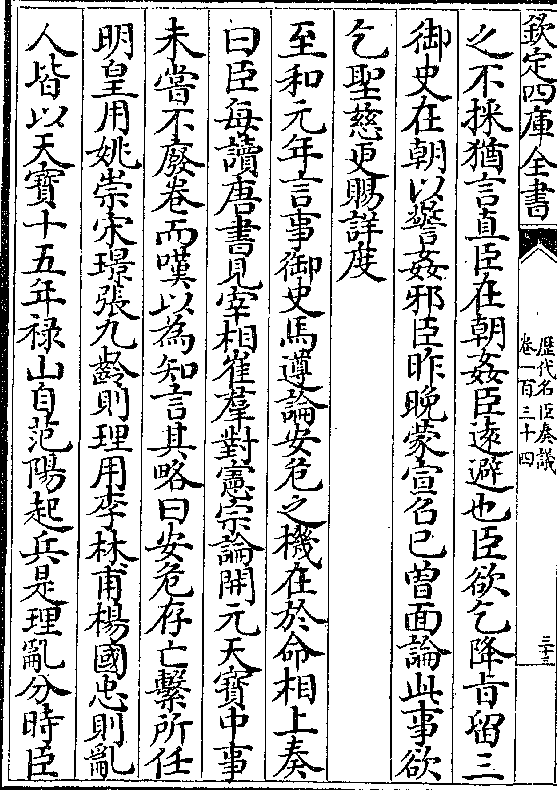 欽定四庫全書
歷代名臣奏議
卷一百三十四
三十三
之不採猶言直臣在朝姦臣遠避也臣欲乞降旨留三
御史在朝以警姦邪臣昨晚蒙宣召已曾面論此事欲
乞聖慈更賜詳度
至和元年言事御史馬遵論安危之機在於命相上奏
曰臣每讀唐書見宰相崔羣對憲宗論開元天寶中事
未嘗不廢卷而嘆以為知言其略曰安危存亡繫所任
明皇用姚崇宋璟張九齡則理用李林甫楊國忠則亂
人皆以天寶十五年祿山自范陽起兵是理亂分時臣